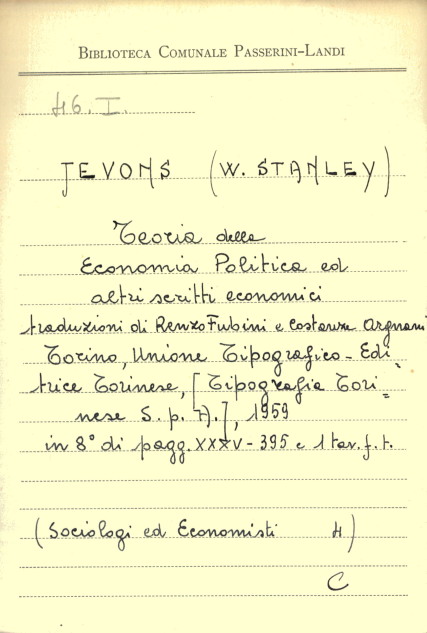 BIBLIOTECA COMUNALE PASSERINI-LANDI
46. I.
JEVONS (W. STANLEY)
Teoria della
Economia Politica ed
altri scritti economici
traduzioni di Renzo Fubini e Costanza Argnani
Torino, Unione Tipografico-Edi=
trice Torinese, [Tipografia Tori=
nese S. p. A.], 1959
in 8° di pagg. XXXV-395 e 1 tav. f. t.
(Sociologi ed Economisti 4)
C